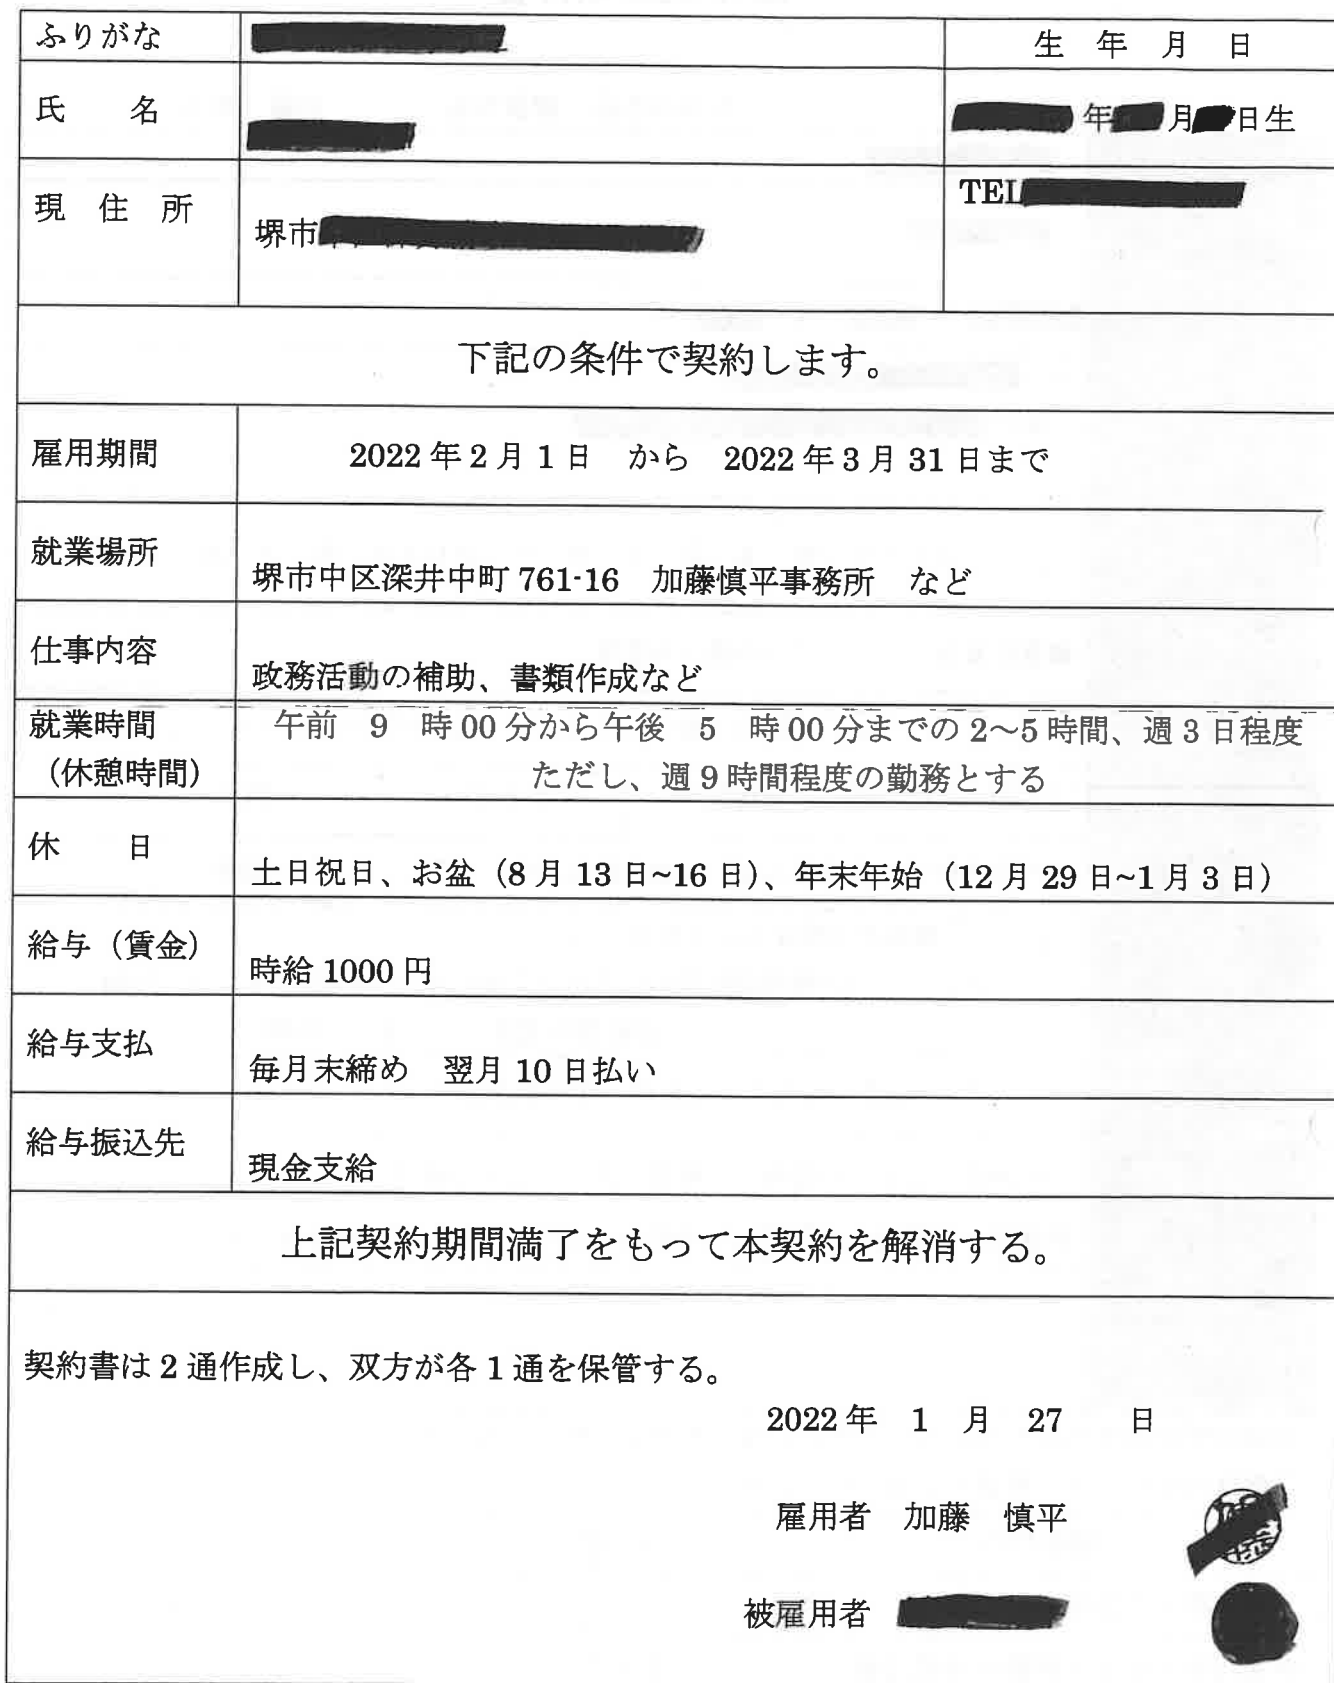 ふりがな
生 年 月 日
氏 名
年 月 日生
現 住 所
堺市
TEL
下記の条件で契約します。
雇用期間
2022年2月1日 から 2022年3月31日まで
就業場所
堺市中区深井中町761-16 加藤慎平事務所 など
仕事内容
政務活動の補助、書類作成など
就業時間
(休憩時間)
午前 9 時00分から午後 5 時00分までの2～5時間、週3日程度
ただし、週9時間程度の勤務とする
休 日
土日祝日、お盆（8月13日~16日）、年末年始（12月29日~1月3日）
給与（賃金）
時給1000円
給与支払
毎月末締め 翌月10日払い
給与振込先
現金支給
上記契約期間満了をもって本契約を解消する。
契約書は2通作成し、双方が各1通を保管する。
2022年 1 月 27 日
雇用者 加藤 慎平
被雇用者